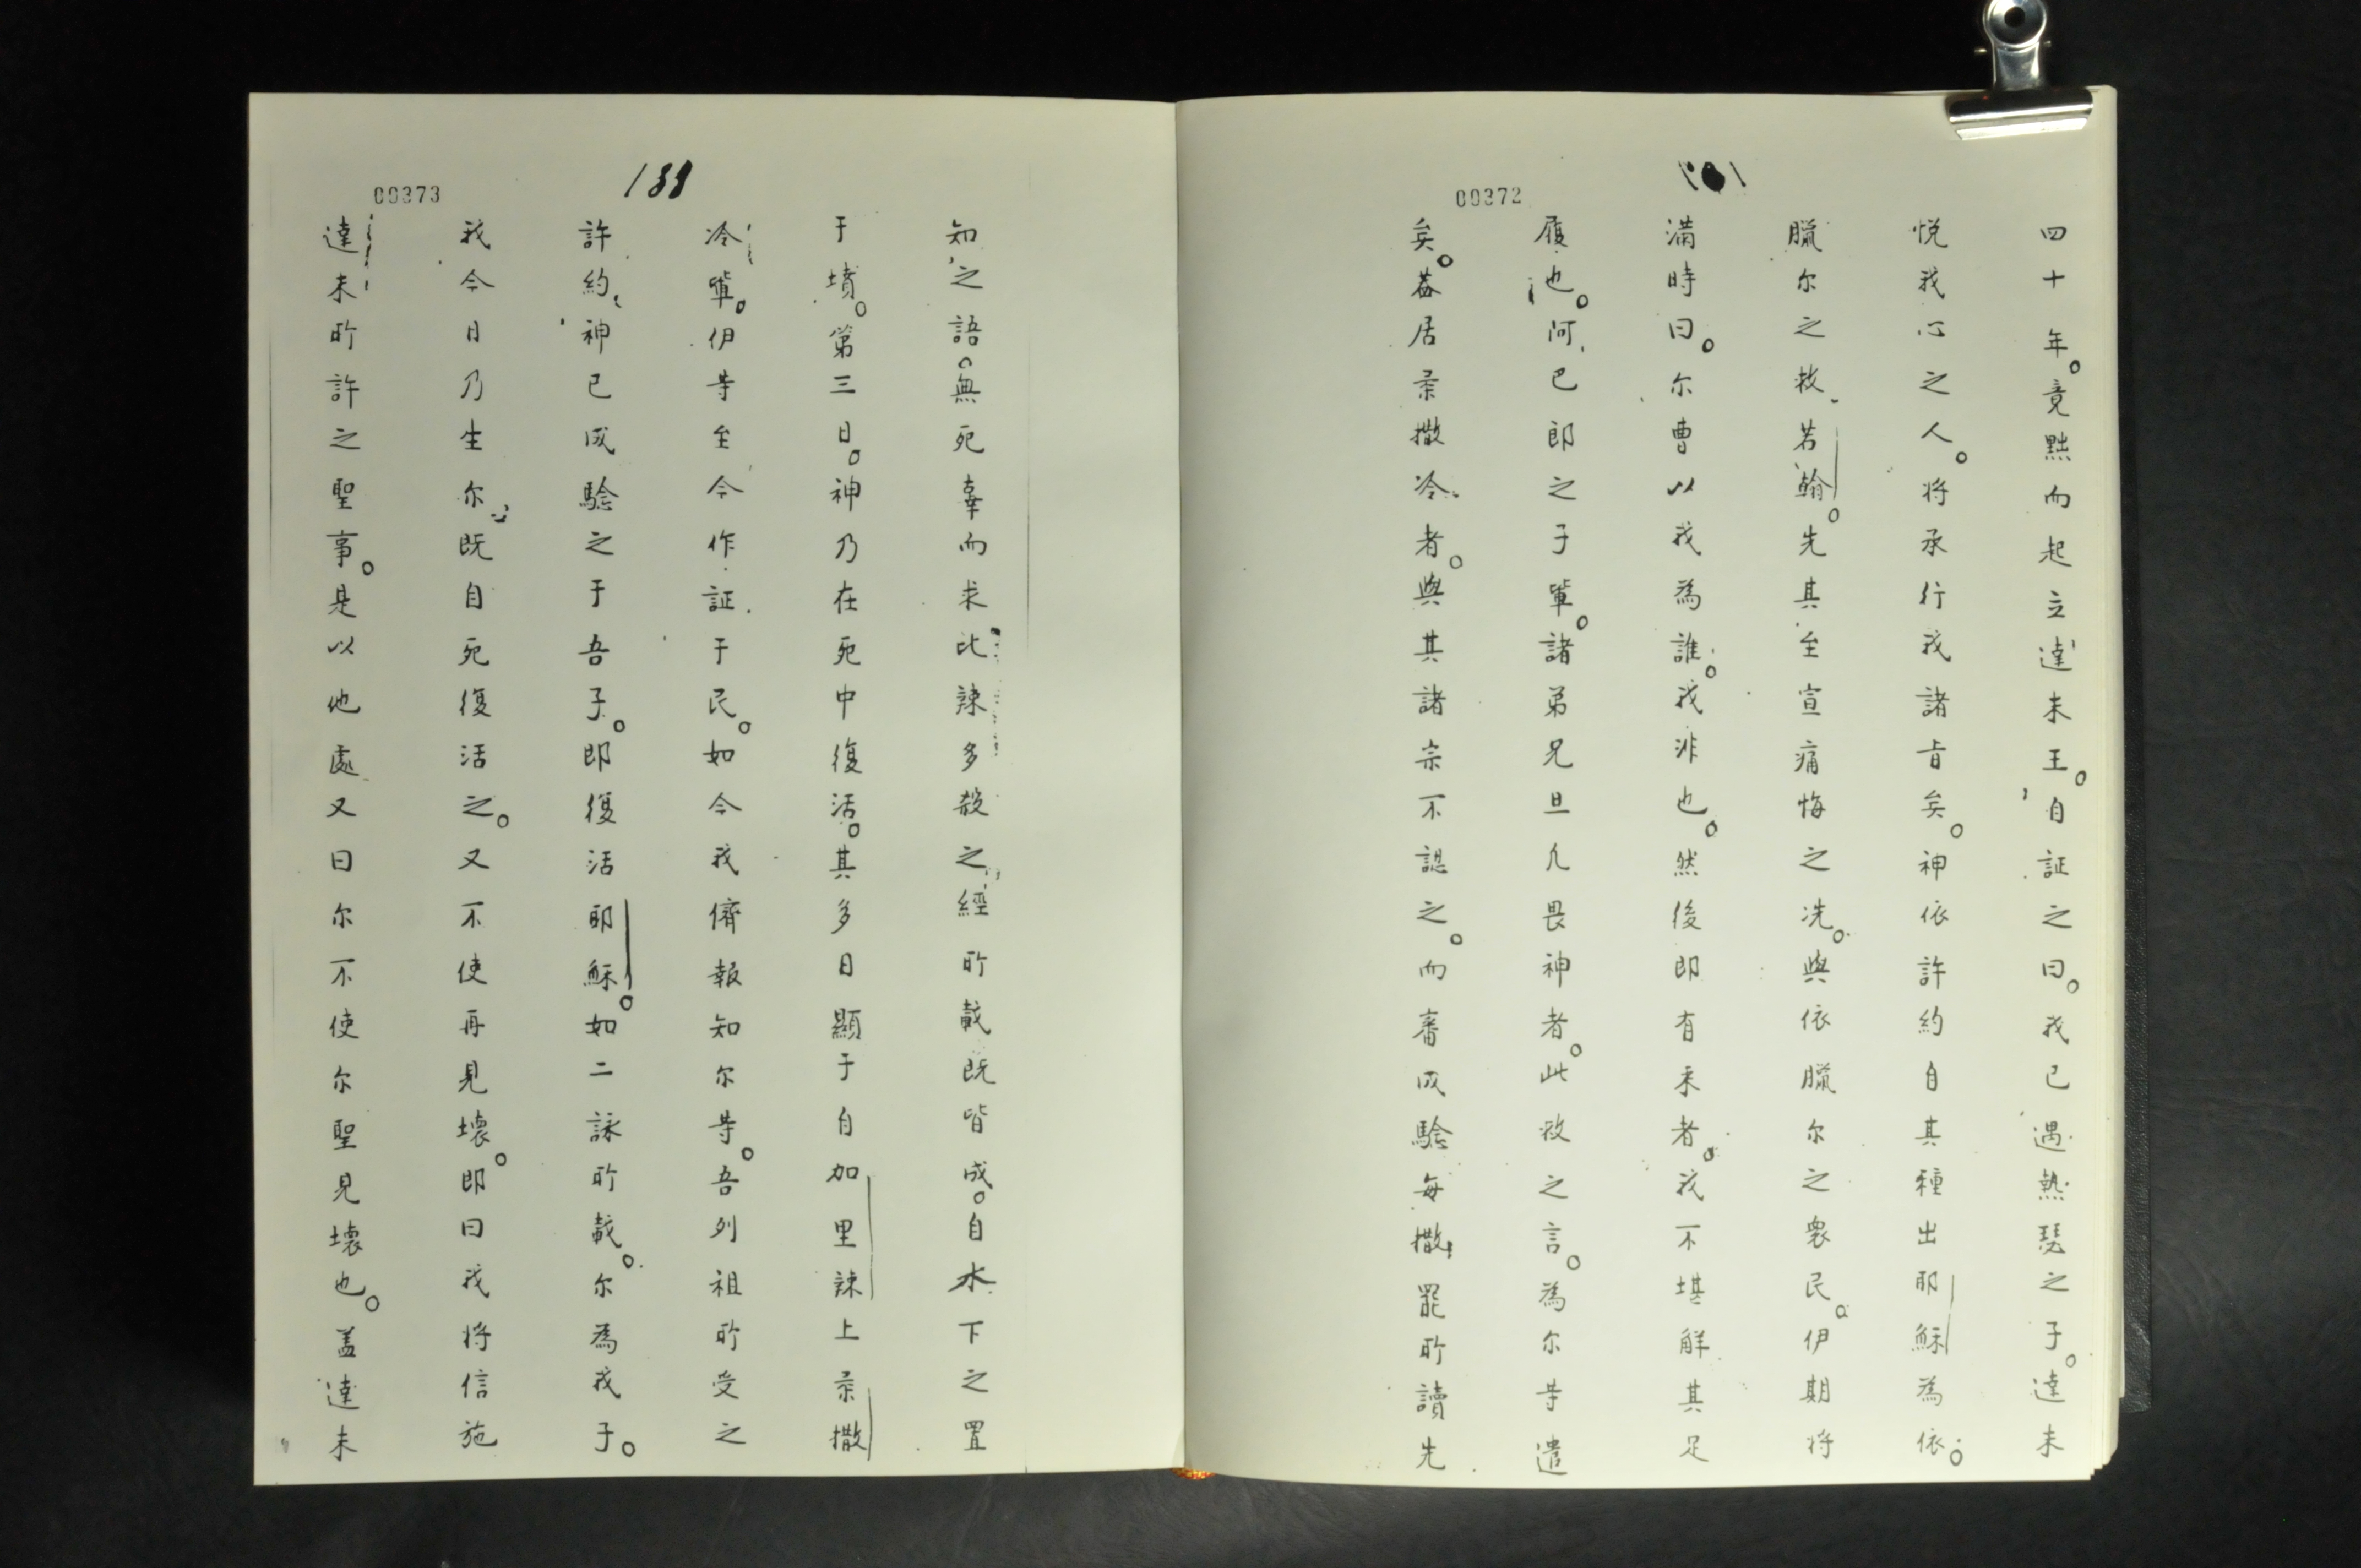 00372
四十年。竟黜而起立達未王。自証之曰。我已遇熱瑟之子。達未
悅我心之人。将承行我諸旨矣。神依許約自其種出耶穌為依。
臘尔之救。若翰。先其至宣痛悔之洗。與依臘尔之衆民。伊期将
滿時曰。尔曹以我為誰。我非也。然後即有来者。我不堪觧其足
履也。阿巴郎之子軰。諸弟兄旦凢畏神者。此救之言。為尔等遣
矣。葢居柔撒冷者。與其諸宗不認之。而審成騐每撒罷所讀先
00373
138
知之語。無死辜而求比辣多殺之。經所載既皆成。自木下之置
于墳。第三日。神乃在死中復活。其多日顯于自加里辣上柔撒
冷軰。伊等至今作証于民。如今我儕報知尔等。吾列祖所受之
許約、神已成騐之于吾子。即復活耶穌。如二詠所載。尔為我子。
我今日乃生尔、既自死復活之。又不使再見壊。即曰我将信施
達未所許之聖事。是以他處又曰尔不使尔聖見壊也。盖達未